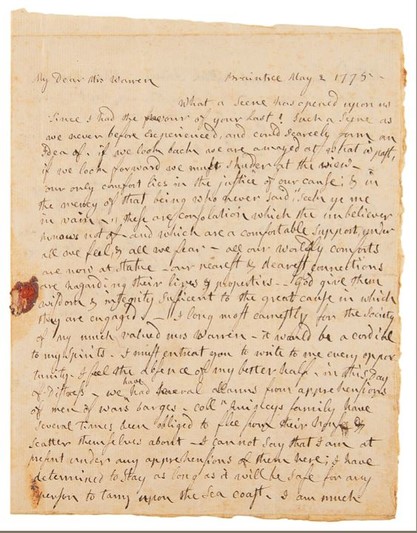 My Dear Mrs Warren Braintree May 2 1775
What a Scene has opened upon us
Since I had the favour of your Last! Such a Scene as
we never before Experienced, and could scarcely form an
Idea of. if we look back we are amazed at what is past,
if we look forward we must shudder at the view.
our only comfort lies in the justice of our cause; & in
the mercy of that being who never said, Seek ye me
in vain. these are consolation which the unbeliever
knows not of and which are a comfortable Support, under
all we feel, & all we fear - all our worldly comforts
are now at stake - our nearest & dearest connections
are hazarding their lives & properties - God give them
wisdom & integrity sufficent to the great cause in which
they are engaged - I long most earnestly for the Society
of my much valued Mrs Warren - it would be a cordial
to my spirits. I must entreat you to write to me every oppor
tunity. I feel the absence of my better half, in this Day
of Distress - we have had several allarms from apprehensions
of men of wars barges - coll Quincys family have
several times been obliged to flee from their house &
scatter themselves about - I cannot say that I am at
present under any apprehensions of them here; I have
determined to stay as long as it will be safe for any
person to tarry upon the Sea coast. I am much